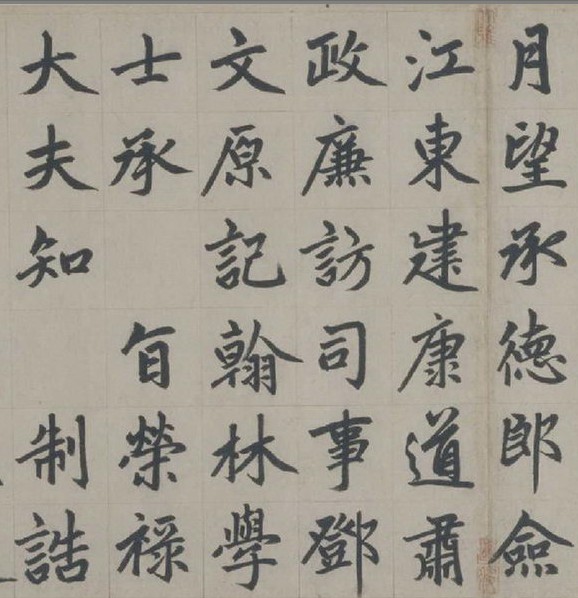 月望承德郎僉
江東建康道肅
政廉訪司事鄧
文原記翰林學
士承 旨榮祿
大夫知 制誥